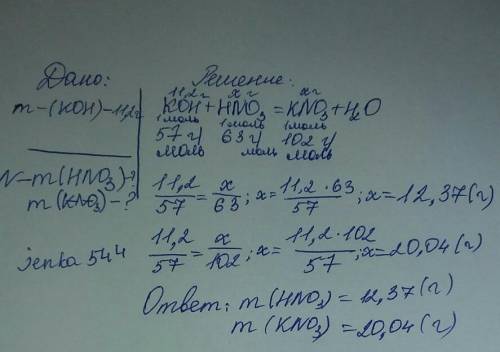 Дано:
m-(KOH)-11,2г
N-m(HNO₃)-?
m(KNO₃)-?
jenka 54ч
Решение:
11,2г x г x г
KOH+HNO₃=KNO₃+H₂O
1моль 1моль 1моль
57 г/моль 63 г/моль 102 г/моль
11,2/57=x/63; x=11,2·63/57; x=12,37(г)
11,2/57=x/102; x=11,2·102/57; x=20,04(г)
Ответ: m(HNO₃)=12,37(г)
m(KNO₃)=20,04(г)